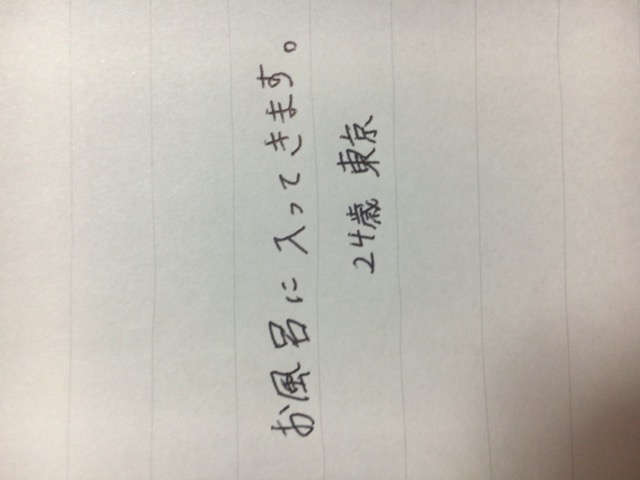 お風呂に入ってきます。
24歳 東京